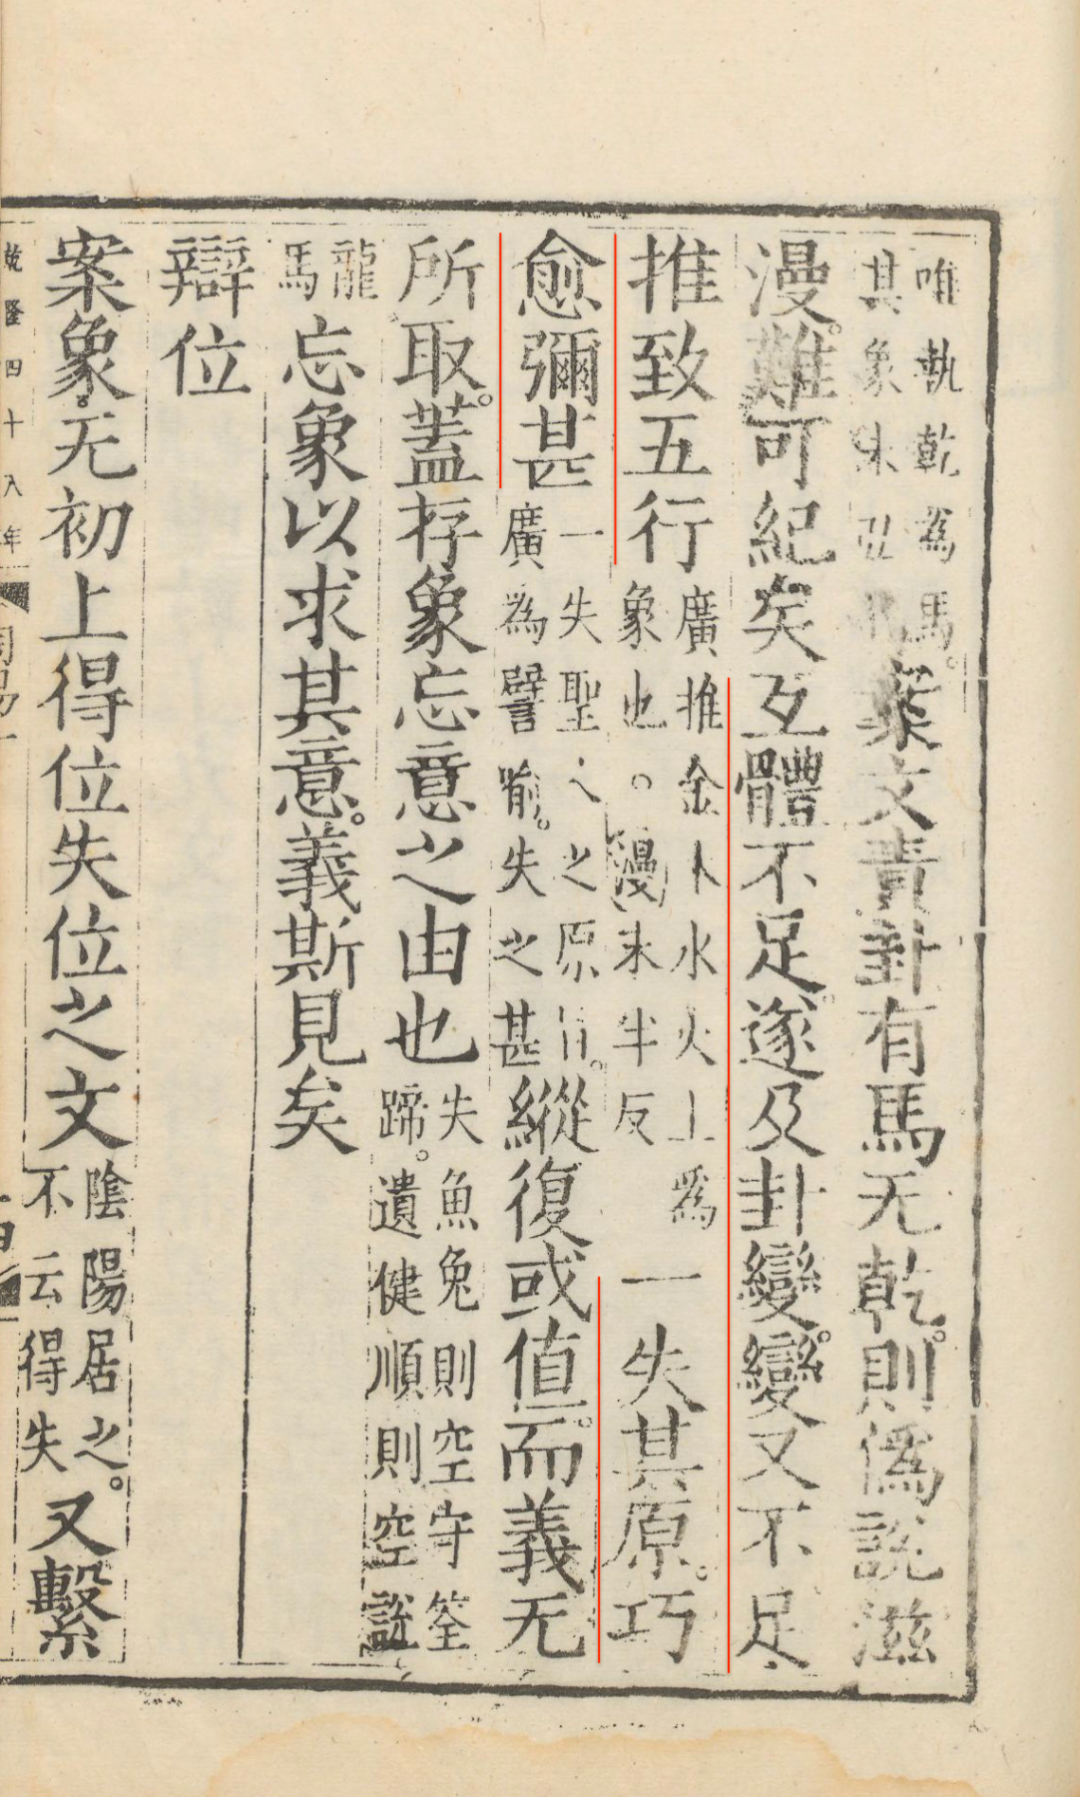 唯執乾為馬。
其象未弘也
案文責卦有馬无乾。則偽說滋
漫。難可紀矣互體不足。遂及卦變。變又不足、
推致五行
廣推金木水火土為
象也。漫末半反
一失其原。巧
愈彌甚
一失聖人之原旨。
廣為譬喻。失之甚
縱復或值。而義无
所取。蓋存象忘意之由也
失魚兔則空守筌
蹄。遺健順則空說
龍
馬
忘象以求其意。義斯見矣
辯位
案象。无初上得位失位之文
陰陽居之。
不云得失
又繫
乾隆四十八年